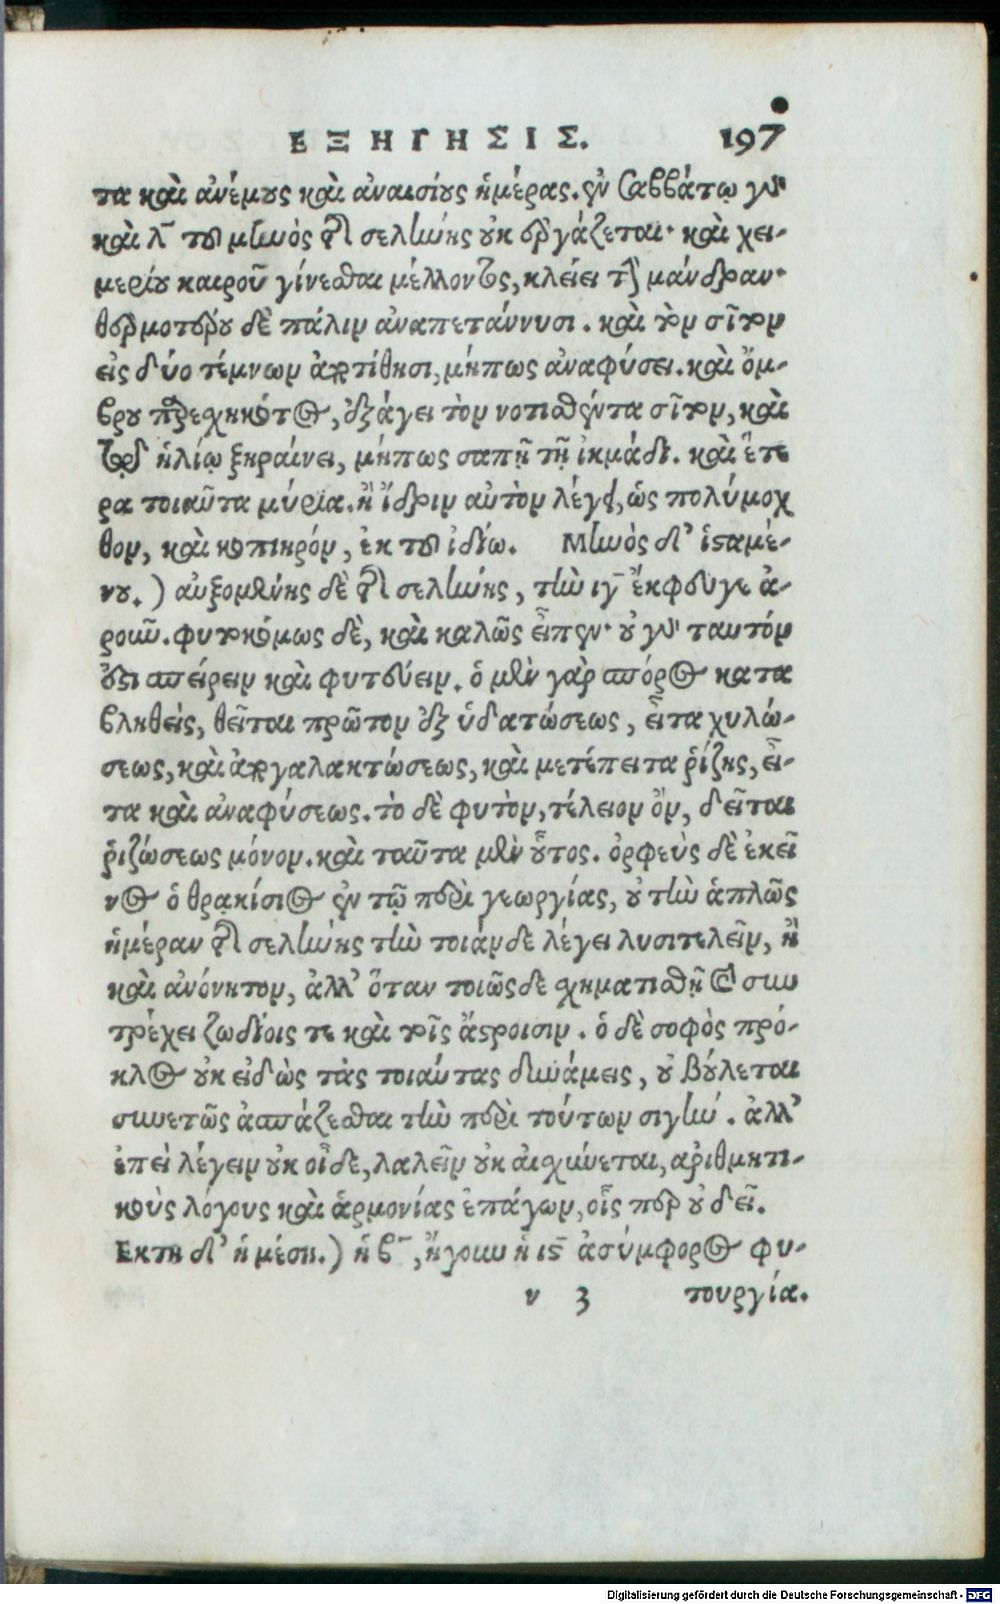 ΕΞΗΓΗΣΙΣ. 197
τα καὶ ἀνέμους καὶ ἀναισίους ἡμέρας. ἐν Σαββάτῳ γὰρ
καὶ λ̄ τοῦ μηνὸς τῆς σελήνης οὐκ ἐργάζεται· καὶ χει-
μερίου καιροῦ γίνεσθαι μέλλοντος, κλείει τὴν μάνδραν·
θερμοτέρου δὲ πάλιν ἀναπετάννυσι. καὶ τὸν σῖτον
εἰς δύο τέμνων ἀποτίθησι, μήπως ἀναφύσει. καὶ ὄμ-
βρου προσεχηκότος, ἐξάγει τὸν νοτισθέντα σῖτον, καὶ
τῷ ἡλίῳ ξηραίνει, μήπως σαπῇ τῇ ἰκμάδι. καὶ ἕτε
ρα τοιαῦτα μύρια. ἢ ἴδριν αὐτὸν λέγει, ὡς πολύμοχ
θον, καὶ κοπικρόν, ἐκ τοῦ ἰδίω. Μηνὸς δ’ ἱσταμέ-
νου.) αὐξομένης δὲ τῆς σελήνης, τὴν ιγ̄ ἔκφευγε ἀ-
ροῦν. φυτοκόμως δὲ, καὶ καλῶς εἶπεν· οὐ γὰρ ταυτόν
ἐστι σπείρειν καὶ φυτεύειν. ὁ μὲν γὰρ σπόρος κατα
βληθεὶς, δεῖται πρῶτον ἐξ ὑδατώσεως, εἶτα χυλώ-
σεως, καὶ ἀπογαλακτώσεως, καὶ μετέπειτα ῥίζης, εἶ-
τα καὶ ἀναφύσεως. τὸ δὲ φυτὸν, τέλειον ὄν, δεῖται
ῥιζώσεως μόνον. καὶ ταῦτα μὲν οὗτος. ὀρφεὺς δὲ ἐκεῖ
νος ὁ θρᾳκίσιος ἐν τῷ περὶ γεωργίας, οὐ τὴν ἁπλῶς
ἡμέραν τῆς σελήνης τὴν τοιάνδε λέγει λυσιτελεῖν, ἢ
καὶ ἀνόνητον, ἀλλ’ ὅταν τοιῶςδε σχηματισθῇ καὶ συν
τρέχει ζωδίοις τε καὶ τοῖς ἄστροισιν. ὁ δὲ σοφὸς πρό-
κλος οὐκ εἰδὼς τὰς τοιαύτας δυνάμεις, οὐ βούλεται
συνετῶς ἀσπάζεσθαι τὴν περὶ τούτων σιγήν. ἀλλ’
ἐπεὶ λέγειν οὐκ οἶδε, λαλεῖν οὐκ αἰσχύνεται, ἀριθμητι-
κοὺς λόγους καὶ ἁρμονίας ἐπάγων, οἷς περ οὐ δεῖ.
Εκτη δ’ ἡ μέση.) ἡ ϛ̄, ἤγουν ἡ ιϛ̄ ἀσύμφορος φυ-
ν 3 τουργία.
Digitalisierung gefördert durch die Deutsche Forschungsgemeinschaft - DFG